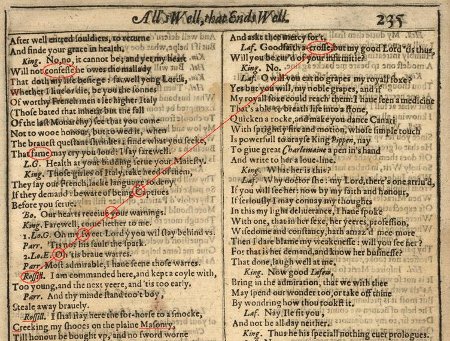 All's Well, that Ends Well. 235
After well entred souldiers, to returne
And finde your grace in health.
King. No, no, it cannot be; and yet my heart
Will not confesse he owes the mallady
That doth my life besiege: farwell yong Lords,
Whether I liue or die, be you the sonnes
Of worthy French men: let higher Italy
(Those bated that inherit but the fall
Of the last Monarchy) see that you come
Not to wooe honour, but to wed it, when
The brauest questant shrinkes: finde what you seeke,
That fame may cry you loud: I say farewell.
L.G. Health at your bidding serue your Maiesty.
King. Those girles of Italy, take heed of them,
They say our French, lacke language to deny
If they demand: beware of being Captiues
Before you serue.
Bo. Our hearts receiue your warnings.
King. Farewell, come hether to me.
1.Lo.G. Oh my sweet Lord you will stay behind vs.
Parr. 'Tis not his fault the spark.
2.Lo.E. Oh 'tis braue warres.
Parr. Most admirable, I haue seene those warres.
Rossill. I am commanded here, and kept a coyle with,
Too young, and the next yeere, and 'tis too early.
Parr. And thy minde stand too't boy,
Steale away brauely.
Rossill. I shal stay here the for-horse to a smocke,
Creeking my shooes on the plaine Masonry,
Till honour be bought vp, and no sword worne
And aske thee mercy for't.
Laf. Goodfaith a-crosse, but my good Lord 'tis thus,
Will you be cur'd of your infirmitie?
King. No.
Laf. O will you eat no grapes my royall foxe?
Yes but you will, my noble grapes, and if
My royall foxe could reach them: I haue seen a medicine
That's able to breath life into a stone,
Quicken a rocke, and make you dance Canari
With sprightly fire and motion, whose simple touch
Is powerfull to arayse King Pippen, nay
To giue great Charlemaine a pen in's hand
And write to her a loue-line.
King. What her is this?
Laf. Why doctor she: my Lord, there's one arriu'd,
If you will see her: now by my faith and honour,
If seriously I may conuay my thoughts
In this my light deliuerance, I haue spoke
With one, that in her sexe, her yeeres, profession,
Wisedome and constancy, hath amaz'd mee more
Then I dare blame my weakenesse: will you see her?
For that is her demand, and know her businesse?
That done, laugh well at me.
King. Now good Lafew,
Bring in the admiration, that we with thee
May spend our wonder too, or take off thine
By wondring how thou tookst it.
Laf. Nay, Ile fit you,
And not be all day neither.
King. Thus he his speciall nothing euer prologues.